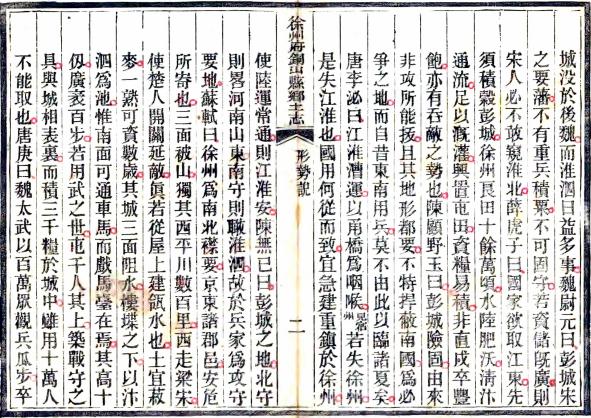 城没於後魏而淮泗日益多事魏尉元曰彭城宋
之要藩不有重兵積粟不可固守若資儲既廣則
宋人必不敢窺淮北薛虎子曰國家欲取江東先
須積穀彭城徐州良田十餘萬頃水陸肥沃清汴
通流足以溉灌興置屯田資糧易積非直戍卒豐
飽亦有吞敵之勢也陳顧野王曰彭城險固由來
非攻所能拔且其地形都要不特捍蔽南國爲必
爭之地而自昔東南用兵莫不由此以臨諸夏矣
唐李泌曰江淮漕運以甬橋爲咽喉宿州若失徐州
是失江淮也國用何從而致宜急建重鎮於徐州
徐州府銅山縣鄉土志
形勢說
二
使陸運常通則江淮安陳無已曰彭城之地北守
則畧河南山東南守則瞰淮泗故於兵家爲攻守
要地蘇軾曰徐州爲南北襟要京東諸郡邑安危
所寄也三面被山獨其西平川數百里西走梁宋
使楚人開關延敵眞若從屋上建瓴水也土宜菽
麥一熟可資數歲其城三面阻水樓堞之下以汴
泗爲池惟南面可通車馬而戲馬臺在焉其高十
仭廣袤百步若用武之世屯千人其上築戰守之
具與城相表裏而積三千糧於城中雖用十萬人
不能取也唐庚曰魏太武以百萬眾觀兵瓜步卒